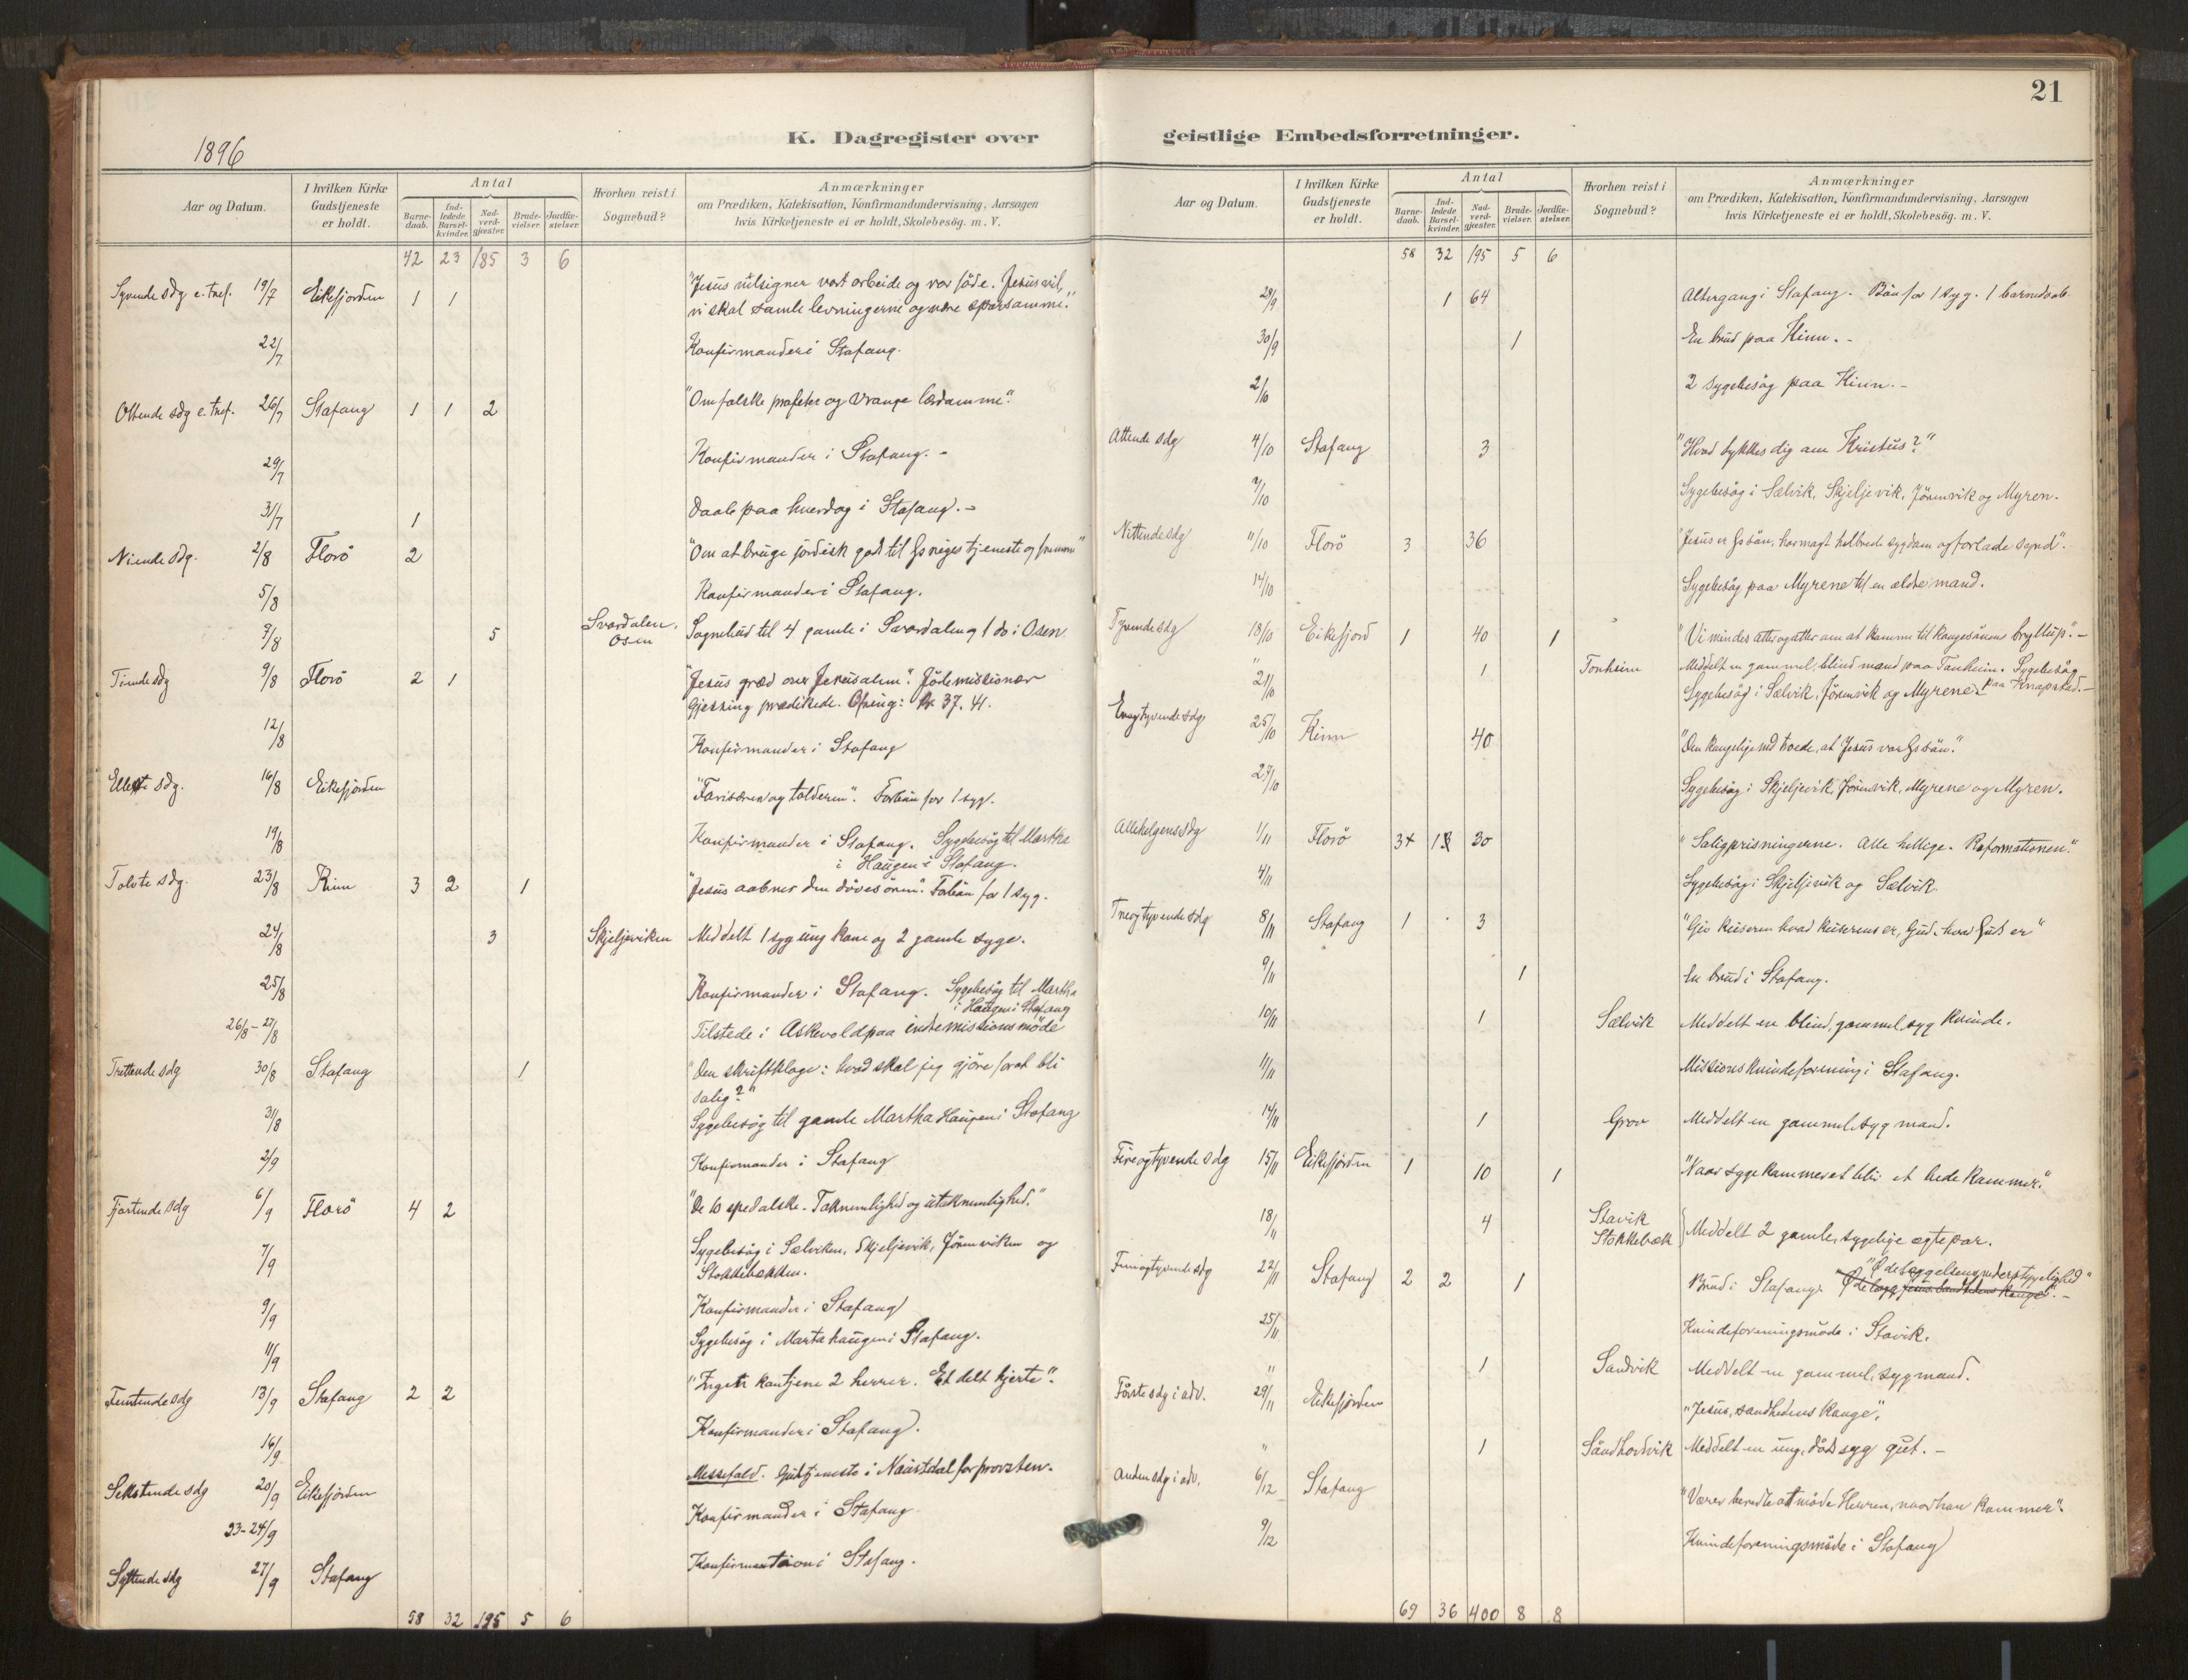 21
K. Dagregister over geistlige Embedsforretninger.
1896
Aar og Datum.
I hvilken Kirke Gudstjeneste er holdt.
Antal
Barne-daab.
Ind-ledede Barsel-kvinder.
Nad-verd-gjæster.
Brude-vielser.
Jordfæ-stelser.
Hvorhen reist i Sognebud?
Anmærkninger
om Prædiken, Katekisation, Konfirmandundervisning, Aarsagen
hvis Kirketjeneste ei er holdt, Skolebesøg. m. V.
42 23 185 3 6
Syvende sdg e. tref. 19/7 Eikefjorden 1 1 "Jesus velsigner vort arbeide og vor føde. Jesus vil,
vi skal samle levningerne og være sparsomme."
22/7 Konfirmander i Stafang.
Ottende sdg e. tref. 26/7 Stafang 1 1 2 "Om falske profeter og vrange lærdomme".
29/7 Konfirmander i Stafang. -
31/7 1 Daab paa hverdag i Stafang. -
Niende sdg. 2/8 Florø 2 "Om at bruge jordisk gods til Gs riges tjeneste og fremme"
5/8 Konfirmander i Stafang.
7/8 5 Svardalen, Osen Sognebud til 4 gamle i Svardalen og 1 do i Osen
Tiende sdg 9/8 Florø 2 1 "Jesus græd over Jerusalem". Jødemissionær
Gjessing prædikede. Ofring: Kr. 37.41.
12/8 Konfirmander i Stafang
Ellevte sdg. 16/8 Eikefjorden "Farisæren og tolderen". Forbøn for 1 syg.
19/8 Konfirmander i Stafang. Sygebesøg til Martha
i Haugen i Stafang.
Tolvte sdg. 23/8 Kinn 3 2 1 "Jesus aabner den døves øren". Forbøn for 1 syg.
24/8 3 Skjeljeviken Meddelt 1 syg ung kone og 2 gamle syge.
25/8 Konfirmander i Stafang. Sygebesøg til Martha
i Haugen i Stafang
26/8 - 27/8 Tilstede i Askevold paa indremissionsmøde
Trettende sdg 30/8 Stafang 1 "Den skriftkloge: hvad skal jeg gjøre forat bli
salig?"
31/8 Sygebesøg til gamle Martha Haugen i Stafang
2/9 Konfirmander i Stafang
Fjortende sdg 6/9 Florø 4 2 "De 10 spedalske. Taknemlighed og utaknemlighed."
7/9 Sygebesøg i Sælviken, Skjeljevik, Jørenviken og
Stokkebækken.
9/9 Konfirmander i Stafang
11/9 Sygebesøg i Martahaugen i Stafang.
Femtende sdg 13/9 Stafang 2 2 "Ingen kan tjene 2 herrer. Et delt hjerte".
16/9 Konfirmander i Stafang.
Sekstende sdg 20/9 Eikefjorden Messefald. Gudstjeneste i Naustdal for provsten.
23-24/9 Konfirmander i Stafang
Syttende sdg 27/9 Stafang Konfirmation i Stafang.
58 32 195 5 6
Aar og Datum.
I hvilken Kirke Gudstjeneste er holdt.
Antal
Barne-daab.
Ind-ledede Barsel-kvinder.
Nad-verd-gjæster.
Brude-vielser.
Jordfæ-stelser.
Hvorhen reist i Sognebud?
Anmærkninger
om Prædiken, Katekisation, Konfirmandundervisning, Aarsagen
hvis Kirketjeneste ei er holdt, Skolebesøg. m. V.
58 32 195 5 6
28/9 1 64 Altergang i Stafang. Bøn for 1 syg. 1 barnedaab
30/9 1 En brud paa Kinn. -
2/10 2 sygebesøg paa Kinn. -
Attende sdg 4/10 Stafang 3 "Hvad tykkes dig om Kristus?"
7/10 Sygebesøg i Sælvik, Skjeljevik, Jørenvik og Myren.
Nittende sdg 11/10 Florø 3 36 "Jesus er Gs søn, har magt helbrede sygdom og forlade synd".
14/10 Sygebesøg paa Myrene til en ældre mand.
Tyvende sdg 18/10 Eikefjord 1 40 1 "Vi mindes atter og atter om at komme til kongesønnens bryllup". -
" 1 Tonheim Meddelt en gammel, blind mand paa Tonheim. Sygebesøg
paa Knapstad. -
21/10 Sygebesøg i Sælvik, Jørenvik og Myrene.
Enogtyvende sdg 25/10 Kinn 40 "Den kongelige md troede, at Jesus var Gs søn."
27/10 Sygebesøg i Skjeljevik, Jørenvik, Myrene og Myren.
Allehelgens sdg 1/11 Florø 3+ 1 30 "Saligprisningerne. Alle hellige. Reformationen."
4/11 Sygebesøg i Skjeljevik og Sælvik.
Treogtyvende sdg 8/11 Stafang 1 3 "Giv keiseren hvad keiserens er, Gud, hvad Guds er"
9/11 1 En brud i Stafang.
10/11 1 Sælvik Meddelt en blind, gammel, syg kvinde.
11/11 Missionskvindeforening i Stafang.
14/11 1 Grov Meddelt en gammel, syg mand.
Fireogtyvende sdg 15/11 Eikefjorden 1 10 1 "Naar sygekammeret blir et bedekammer."
18/11 4 Stavik Stokkebæk Meddelt 2 gamle, sygelige ægtepar.
Femogtyvende sdg 22/11 Stafang 2 2 1 Brud i Stafang. "Ødelæggelsens vederstyggelighed"
25/11 Kvindeforeningsmøde i Stavik.
" 1 Sandvik Meddelt en gammel, syg mand.
Første sdg i adv. 29/11 Eikefjorden "Jesus, sandhedens konge",
" 1 Sandhovdvik Meddelt en ung, dødssyg gut. -
Anden sdg i adv. 6/12 Stafang "Værer beredte at møde Herren, naar han kommer".
9/12 Kvindeforeningsmøde i Stafang
69 36 400 8 8